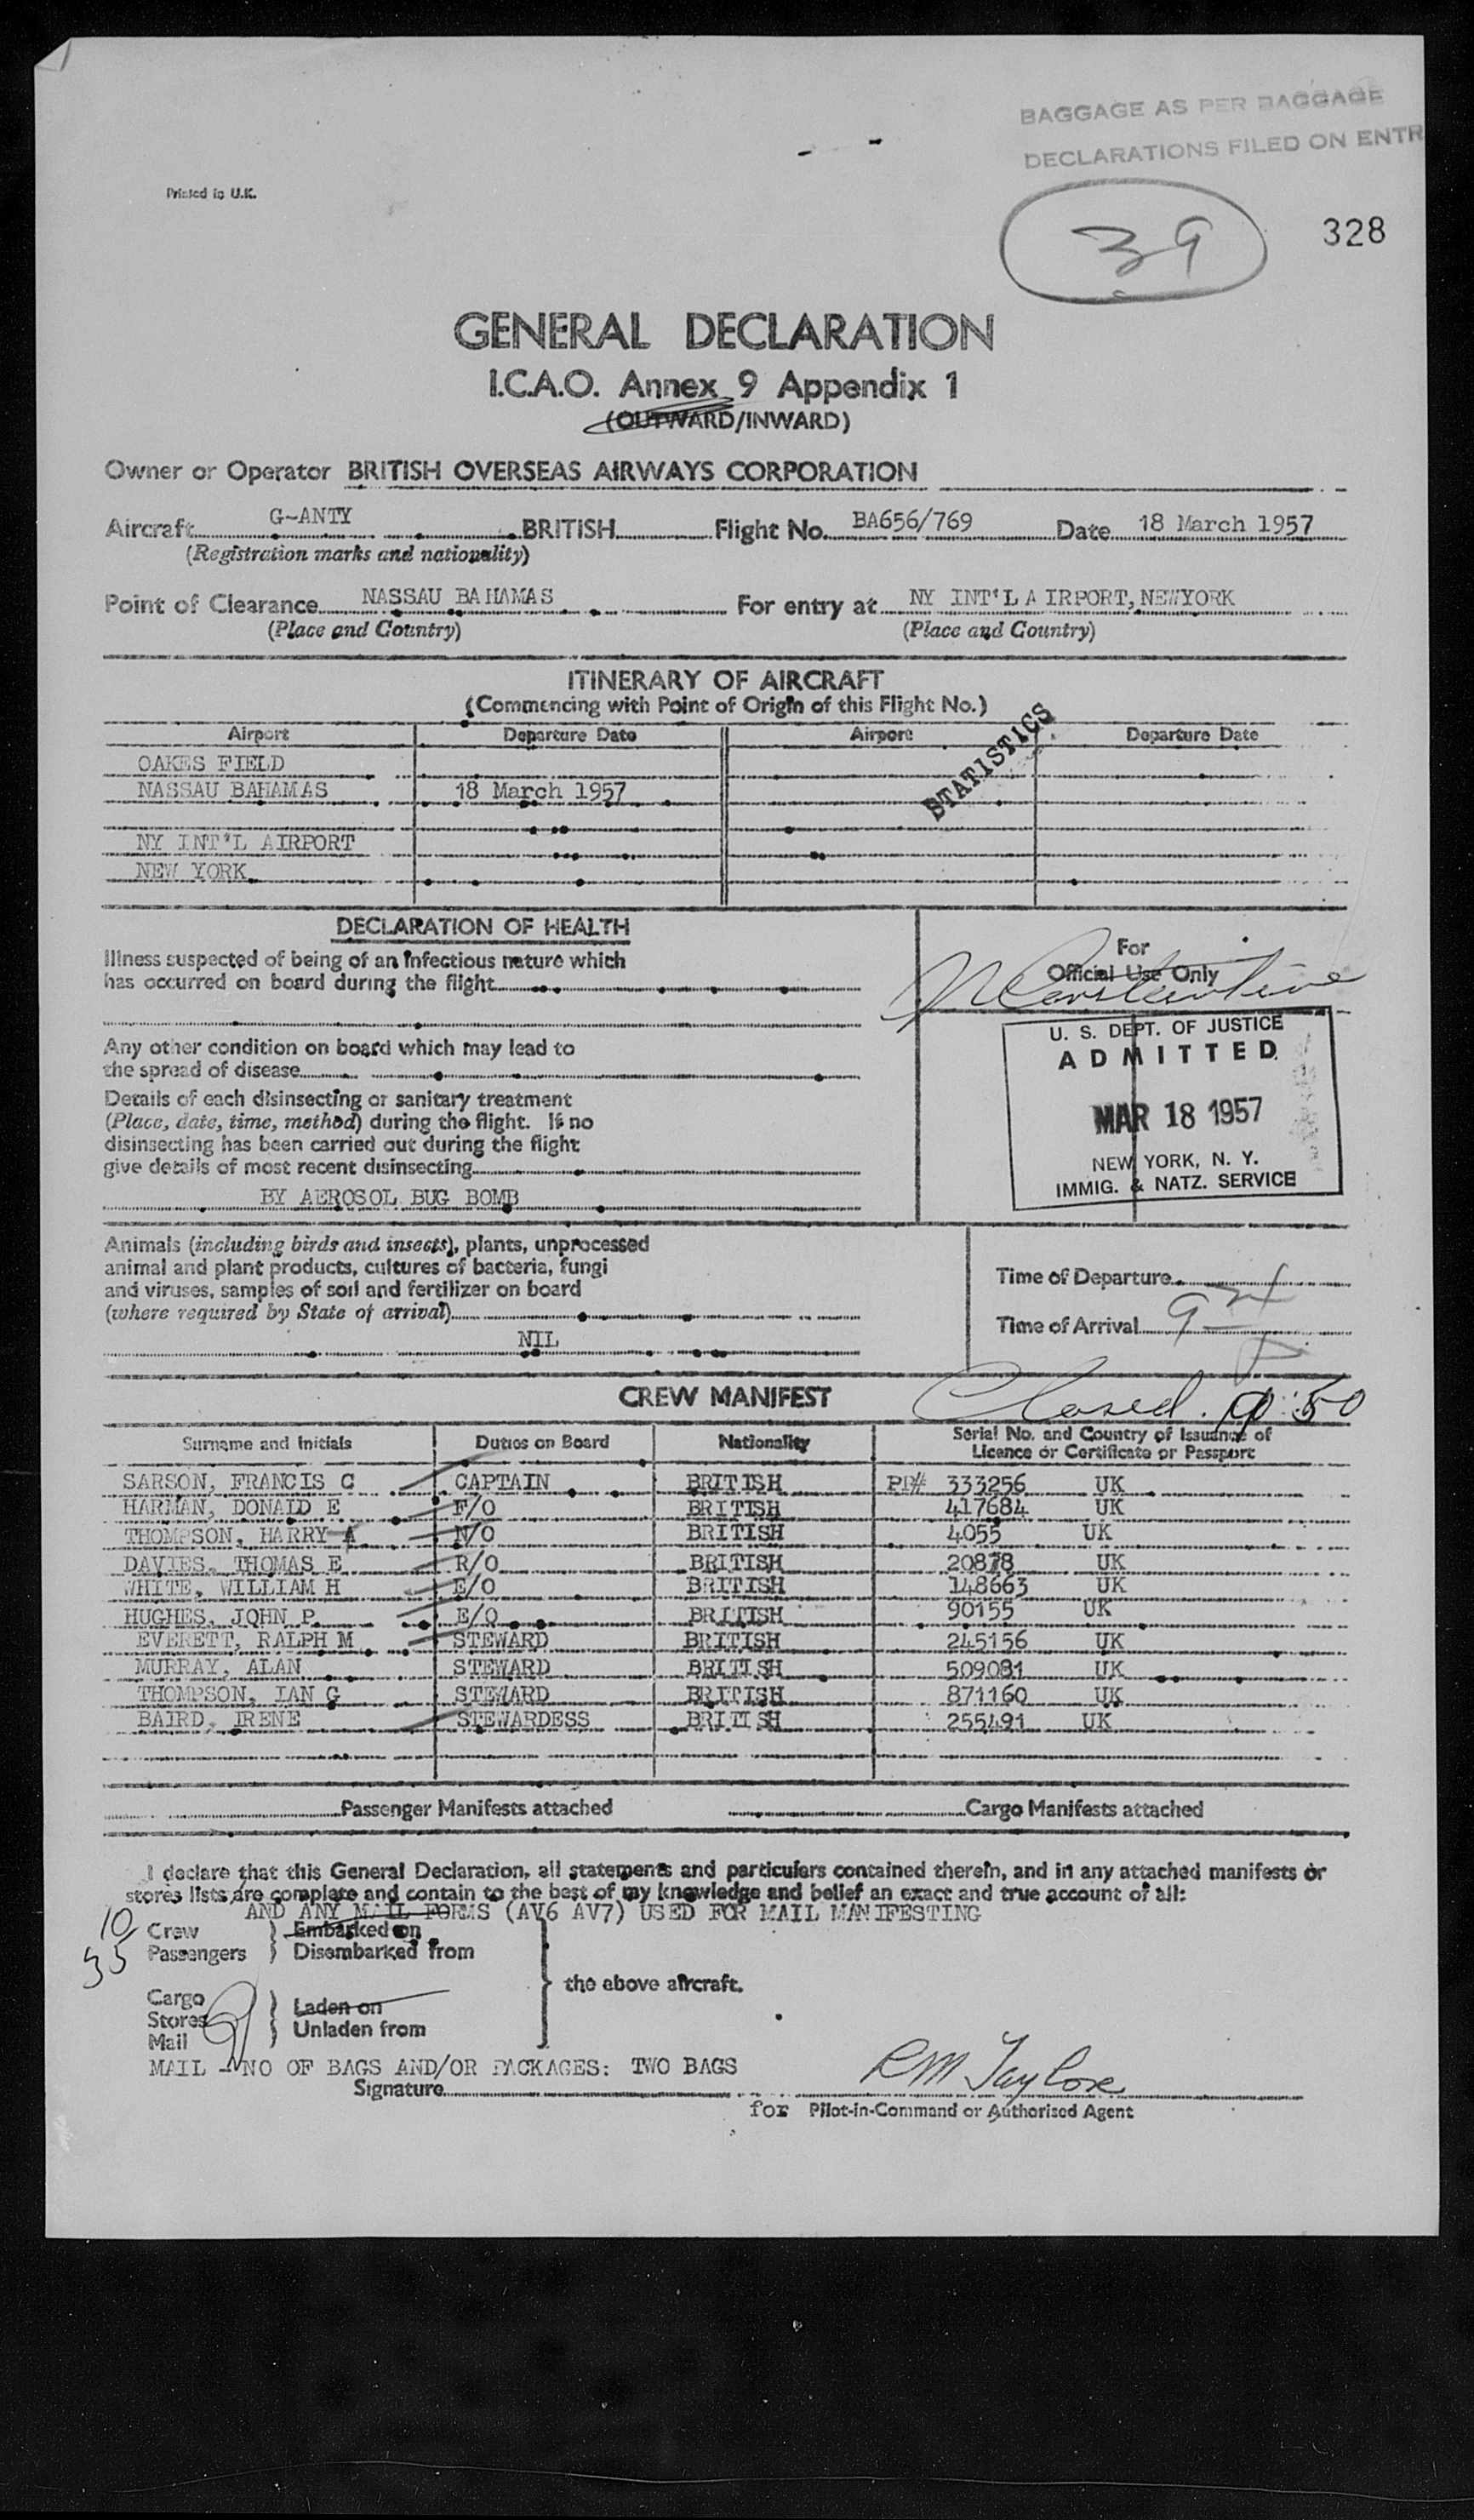 BAGGAGE AS PER BAGGAGE
DECLARATIONS FILED ON ENTR
Printed in U.K.
39
328
GENERAL DECLARATION
I.C.A.O. Annex 9 Appendix 1
(OUTWARD/INWARD)
Owner or Operator BRITISH OVERSEAS AIRWAYS CORPORATION
Aircraft G-ANTY BRITISH Flight No. BA656/769 Date 18 March 1957
(Registration marks and nationality)
Point of Clearance NASSAU BAHAMAS For entry at NY INT'L AIRPORT, NEWYORK
(Place and Country) (Place and Country)
ITINERARY OF AIRCRAFT
(Commencing with Point of Origin of this Flight No.)
STATISTICS
Airport Departure Date Airport Departure Date
OAKES FIELD
NASSAU BAHAMAS 18 March 1957
NY INT'L AIRPORT
NEW YORK
DECLARATION OF HEALTH
Illness suspected of being of an infectious nature which
has occurred on board during the flight
Any other condition on board which may lead to
the spread of disease
Details of each disinsecting or sanitary treatment
(Place, date, time, method) during the flight. If no
disinsecting has been carried out during the flight
give details of most recent disinsecting
BY AEROSOL BUG BOMB
For
Official Use Only
U. S. DEPT. OF JUSTICE
ADMITTED
MAR 18 1957
NEW YORK, N. Y.
IMMIG. & NATZ. SERVICE
Animals (including birds and insects), plants, unprocessed
animal and plant products, cultures of bacteria, fungi
and viruses, samples of soil and fertilizer on board
(where required by State of arrival)
NIL
Time of Departure
Time of Arrival
CREW MANIFEST
Closed
Surname and Initials Duties on Board Nationality Serial No. and Country of Issuance of
Licence or Certificate or Passport
SARSON, FRANCIS C CAPTAIN BRITISH PP# 333256 UK
HARMAN, DONALD E F/O BRITISH 417684 UK
THOMPSON, HARRY A N/O BRITISH 4055 UK
DAVIES, THOMAS E R/O BRITISH 20878 UK
WHITE, WILLIAM H E/O BRITISH 148663 UK
HUGHES, JOHN P. E/O BRITISH 90155 UK
EVERETT, RALPH M STEWARD BRITISH 245156 UK
MURRAY, ALAN STEWARD BRITISH 509081 UK
THOMPSON, IAN G STEWARD BRITISH 871160 UK
BAIRD, IRENE STEWARDESS BRITISH 255491 UK
Passenger Manifests attached Cargo Manifests attached
I declare that this General Declaration, all statements and particulars contained therein, and in any attached manifests or
stores lists are complete and contain to the best of my knowledge and belief an exact and true account of all:
AND ANY MAIL FORMS (AV6 AV7) USED FOR MAIL MANIFESTING
10 Crew Embarked on
35 Passengers Disembarked from
the above aircraft.
Cargo
Stores Laden on
Mail Unladen from
MAIL - NO OF BAGS AND/OR PACKAGES: TWO BAGS
Signature RM Taylor
for Pilot-in-Command or Authorised Agent